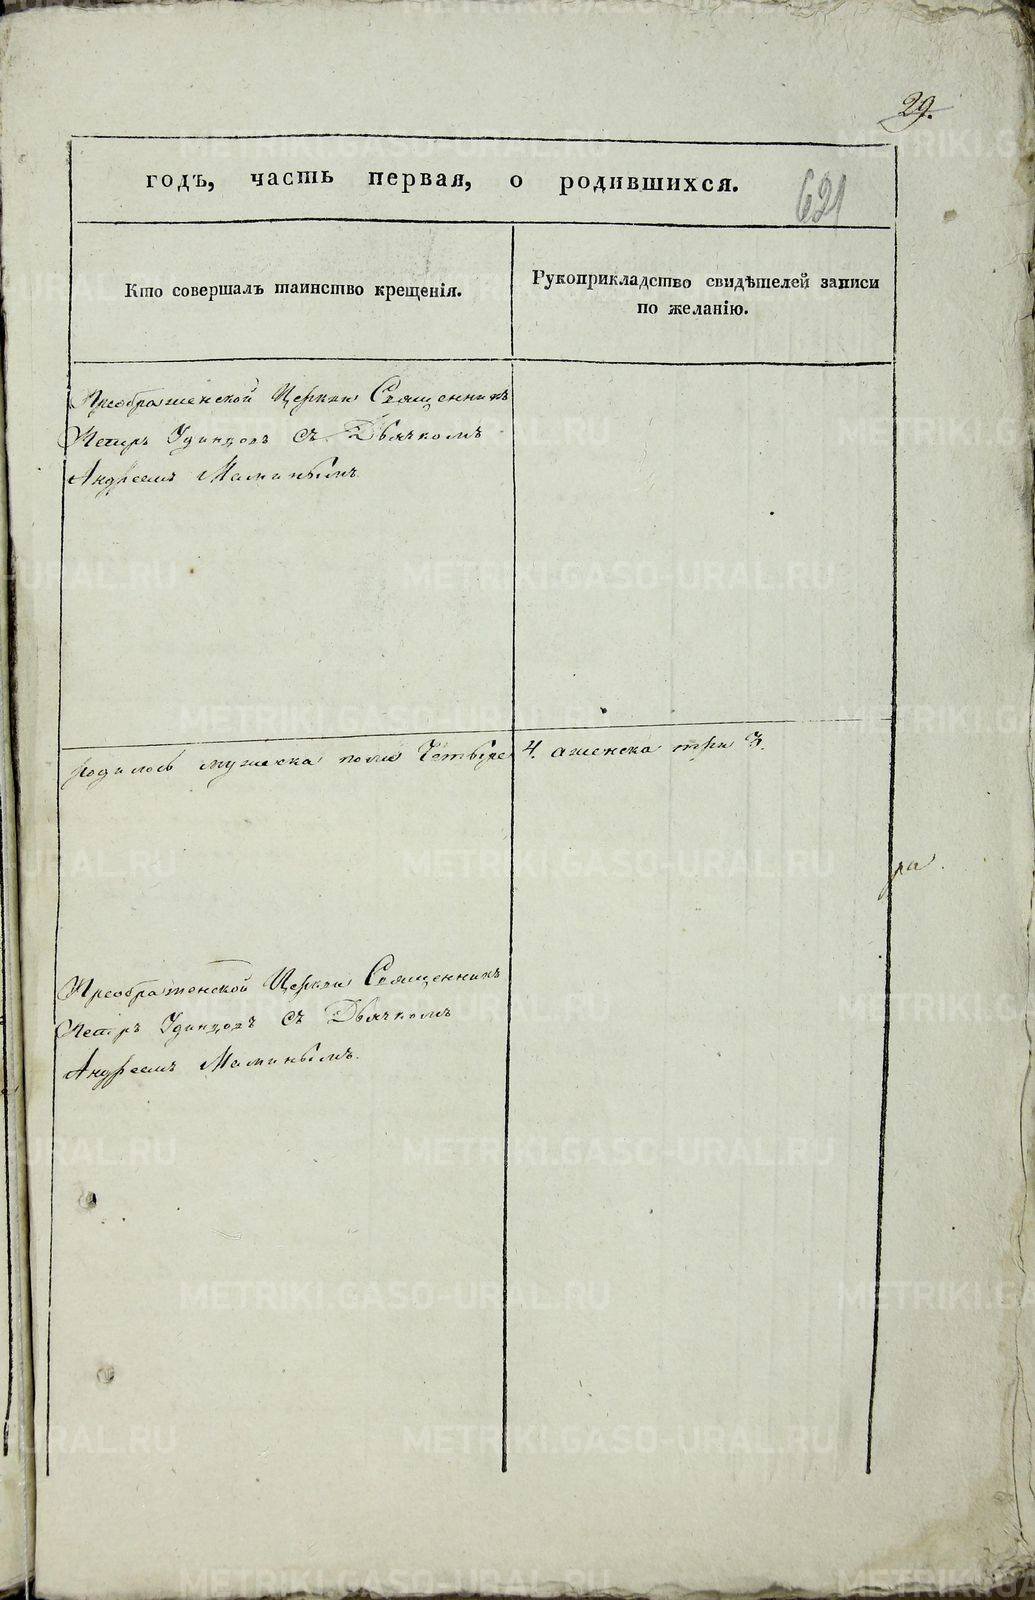 29.
годъ, часть первая, о родившихся.
621
Кто совершалъ таинство крещенія.
Рукоприкладство свидѣтелей записи
по желанію.
Преображенской Церкви Священникъ
Петръ Удинцовъ съ Дьячкомъ
Андреемъ Маминымъ
родилось мужеска пола Четыре 4. а женска три 3.
ра
Преображенской Церкви Священникъ
Петръ Удинцовъ съ Дьячкомъ
Андреемъ Маминымъ.
METRIKI.GASO-URAL.RU